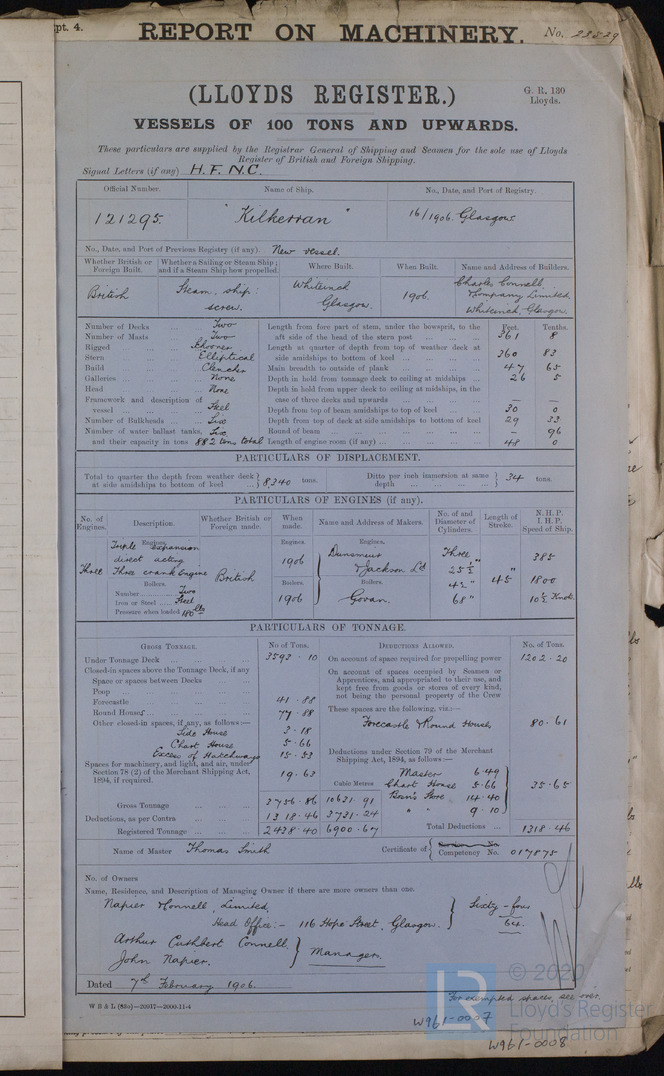 pt. 4.
REPORT ON MACHINERY. No. 23829
(LLOYDS REGISTER.)
G. R. 130
Lloyds.
VESSELS OF 100 TONS AND UPWARDS.
These particulars are supplied by the Registrar General of Shipping and Seamen for the sole use of Lloyds
Register of British and Foreign Shipping.
Signal Letters (if any) H.F.N.C.
Official Number. Name of Ship. No., Date, and Port of Registry.
121295. "Kilkerran" 16/1906. Glasgow
No., Date, and Port of Previous Registry (if any). New vessel.
Whether British or Foreign Built. Whether a Sailing or Steam Ship; and if a Steam Ship how propelled. Where Built. When Built. Name and Address of Builders.
British Steam ship: screw. Whiteinch Glasgow. 1906. Charles Connell & Company Limited, Whiteinch, Glasgow
Feet. Tenths.
Number of Decks ... Two Length from fore part of stem, under the bowsprit, to the
Number of Masts ... Two aft side of the head of the stern post ... 361 8
Rigged ... Schooner Length at quarter of depth from top of weather deck at
Stern ... Elliptical side amidships to bottom of keel ... 360 83
Build ... Clencher Main breadth to outside of plank ... 47 65
Galleries ... None Depth in hold from tonnage deck to ceiling at midships ... 26 5
Head ... None Depth in hold from upper deck to ceiling at midships, in the
Framework and description of case of three decks and upwards ... — —
vessel ... Steel Depth from top of beam amidships to top of keel ... 30 0
Number of Bulkheads ... Six Depth from top of deck at side amidships to bottom of keel 29 33
Number of water ballast tanks, Six Round of beam ... — 96
and their capacity in tons 882 tons total Length of engine room (if any) ... 48 0
PARTICULARS OF DISPLACEMENT.
Total to quarter the depth from weather deck at side amidships to bottom of keel ... } 8,340 tons. Ditto per inch immersion at same depth ... } 34 tons.
PARTICULARS OF ENGINES (if any).
No. of Engines. Description. Whether British or Foreign made. When made. Name and Address of Makers. No. of and Diameter of Cylinders. Length of Stroke. N. H. P. I. H. P. Speed of Ship.
Engines. Engines. Engines.
Triple expansion
direct acting 1906 Dunsmuir Three 385
Three Three crank Engine British & Jackson Ld 25½" 45" 1800
Boilers. Boilers. Boilers. 42"
Number Two
Iron or Steel Steel 1906 Govan. 68" 10½ Knots.
Pressure when loaded 180 lbs
PARTICULARS OF TONNAGE.
GROSS TONNAGE. No of Tons. DEDUCTIONS ALLOWED. No. of Tons.
Under Tonnage Deck ... 3593 . 10 On account of space required for propelling power 1202 . 20
Closed-in spaces above the Tonnage Deck, if any On account of spaces occupied by Seamen or
Space or spaces between Decks ... Apprentices, and appropriated to their use, and
Poop ... kept free from goods or stores of every kind,
Forecastle ... 41 . 88 not being the personal property of the Crew
Round Houses ... 77 . 88 These spaces are the following, viz.:—
Other closed-in spaces, if any, as follows:— Forecastle & Round House 80 . 61
Side House 3 . 18
Chart House 5 . 66 Deductions under Section 79 of the Merchant
Excess of Hatchways 15 . 53 Shipping Act, 1894, as follows:—
Spaces for machinery, and light, and air, under Master 6.49
Section 78 (2) of the Merchant Shipping Act, 1894, if required. 19 . 63 Cubic Metres Chart House 5.66 35 . 65
Bosn's Store 14.40
Gross Tonnage ... 3756 . 86 10631 . 91 " " 9 . 10
Deductions, as per Contra ... 1318 . 46 3731 . 24
Registered Tonnage ... 2438 . 40 6900 . 67 Total Deductions ... 1318 . 46
Name of Master Thomas Smith Certificate of Competency No. 017875
No. of Owners
Name, Residence, and Description of Managing Owner if there are more owners than one.
Napier & Connell, Limited, Sixty-four
Head Office:- 116 Hope Street, Glasgow. 64.
Arthur Cuthbert Connell,
John Napier. } Managers
Dated 7th February 1906.
For exempted spaces, see over.
W B & L (85o)—20017—2000-11-4
W961-0007
W961-0008
LR
© 2020
Lloyd's Register
Foundation